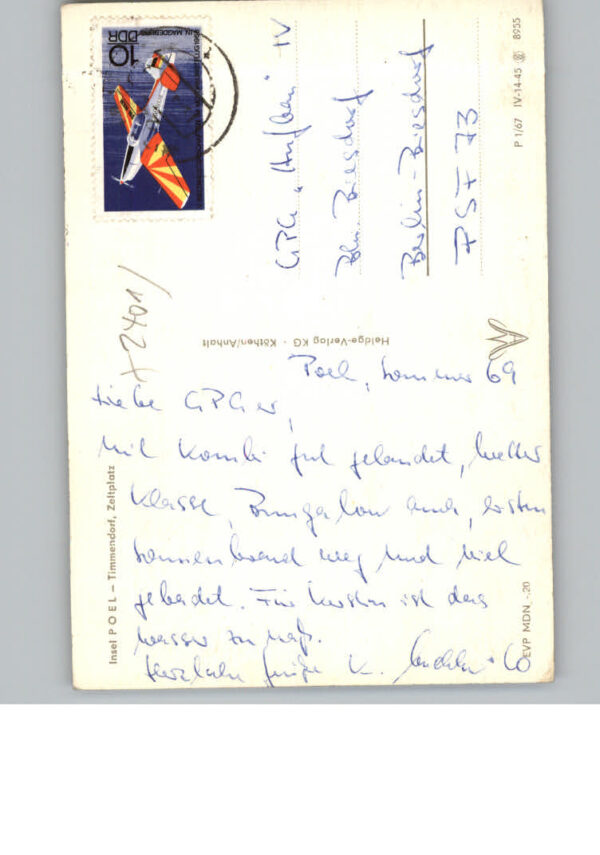 10
DDR
GPG „Aufbau" IV
Bln. Biesdorf
Berlin-Biesdorf
PSF 73
P 1/67 IV-14-45 8955
+2401/
Heldge-Verlag KG · Köthen/Anhalt
Insel POEL – Timmendorf, Zeltplatz
EVP MDN -,20
Poel, Sommer 69
Liebe GPGer,
Mit Kombi gut gelandet, Wetter
Klasse, Bungalow auch, ersten
Sonnenbrand weg und viel
gebadet. Für Kerstin ist das
Wasser zu naß.
Herzliche Grüße K. + Co